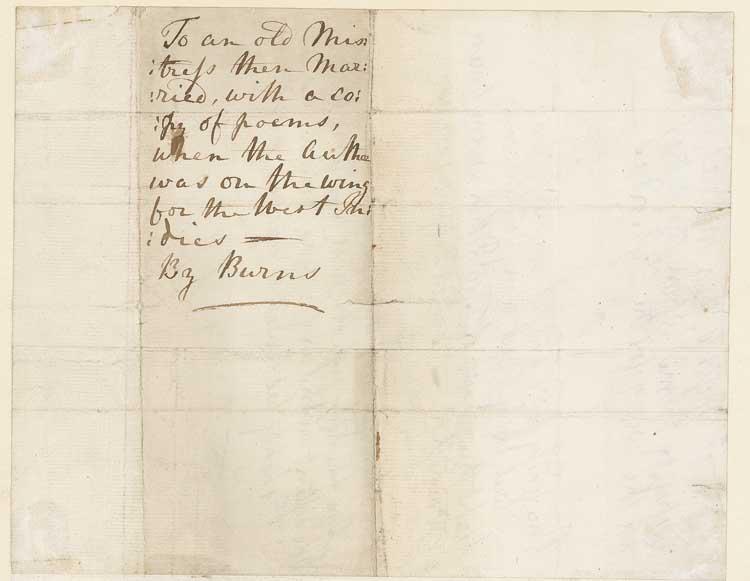 To an old Mis:
:tress then Mar:
:ried, with a co:
:py of poems,
when the Author
was on the wing
for the West In:
:dies —
By Burns